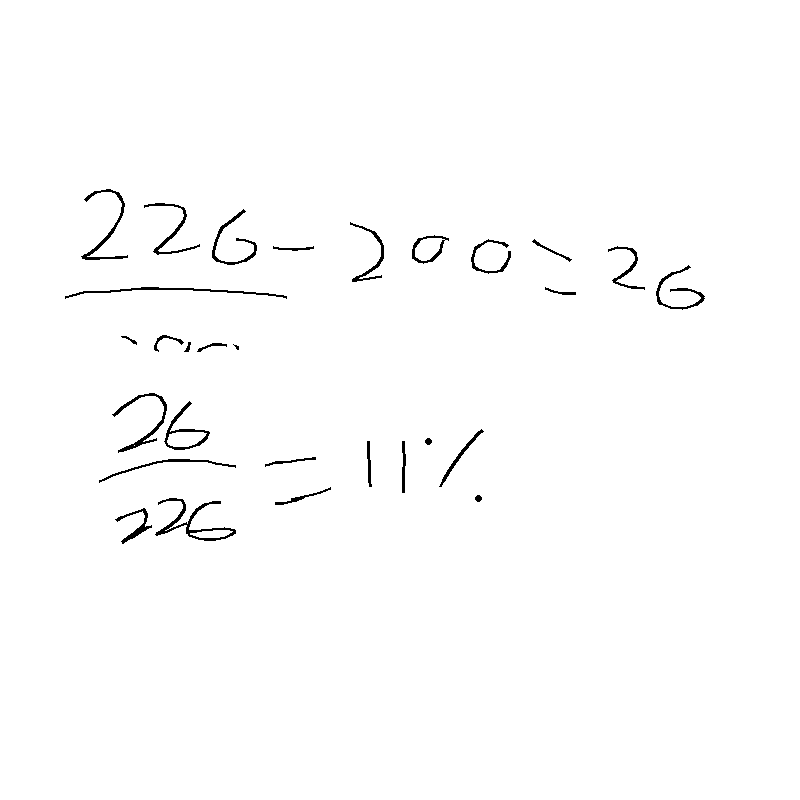 226-200=26
26/226=11%